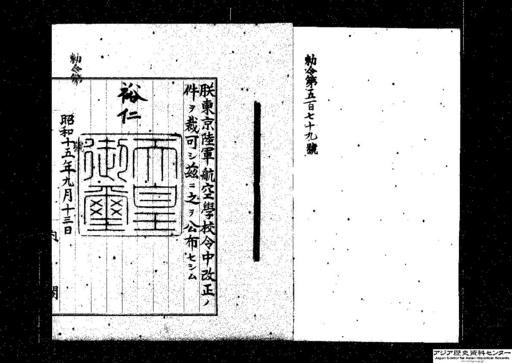 勅令第五百七十九號
朕東京陸軍航空學校令中改正ノ
件ヲ裁可シ茲ニ之ヲ公布セシム
裕仁
天皇御璽
昭和十五年九月十三日
勅令第
號
内閣
アジア歴史資料センター
Japan Center for Asian Historical Records